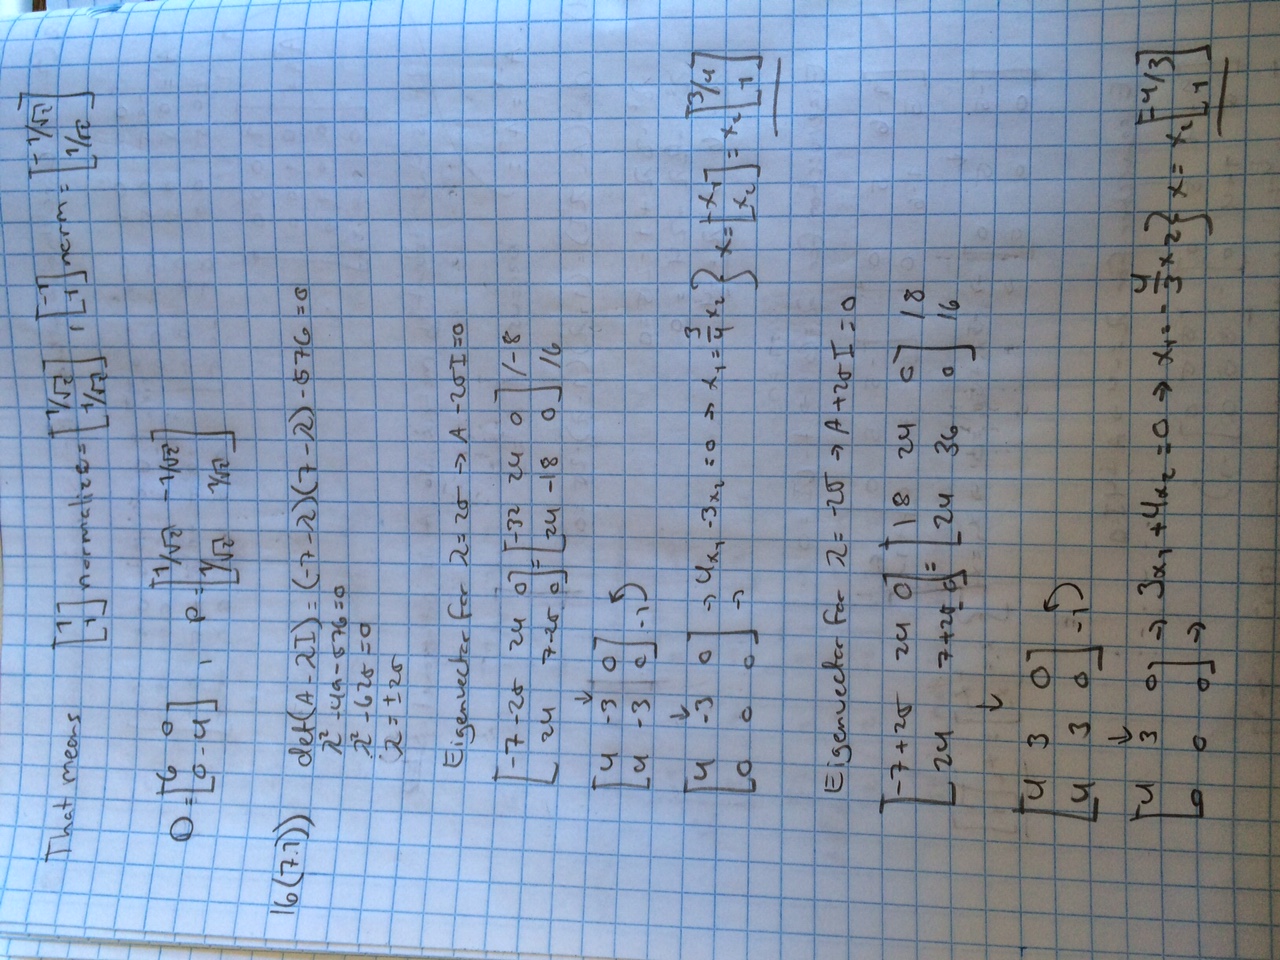 That means [1 1] normalize = [1/√2 1/√2] , [-1 1] norm = [-1/√2 1/√2]
D = [6 0
0 -4] , P = [1/√2 -1/√2
1/√2 1/√2]
16(7.1)) det(A - λI) = (-7-λ)(7-λ) - 576 = 0
λ² - 49 - 576 = 0
λ² - 625 = 0
λ = ±25
Eigenvector for λ = 25 → A - 25I = 0
[-7-25 24 0] = [-32 24 0] /-8
[24 7-25 0] [24 -18 0] /6
↓
[4 -3 0]
[4 -3 0] -1
↓
[4 -3 0] → 4x₁ - 3x₂ = 0 → x₁ = 3/4 x₂ } x = [x₁ x₂] = x₂ [3/4 1]
[0 0 0] →
Eigenvector for λ = -25 → A + 25I = 0
[-7+25 24 0] = [18 24 0] /8
[24 7+25 0] [24 36 0] /6
↓
[4 3 0]
[4 3 0] -1
↓
[4 3 0] → 3x₁ + 4x₂ = 0 → x₁ = -4/3 x₂ } x = x₂ [-4/3 1]
[0 0 0] →